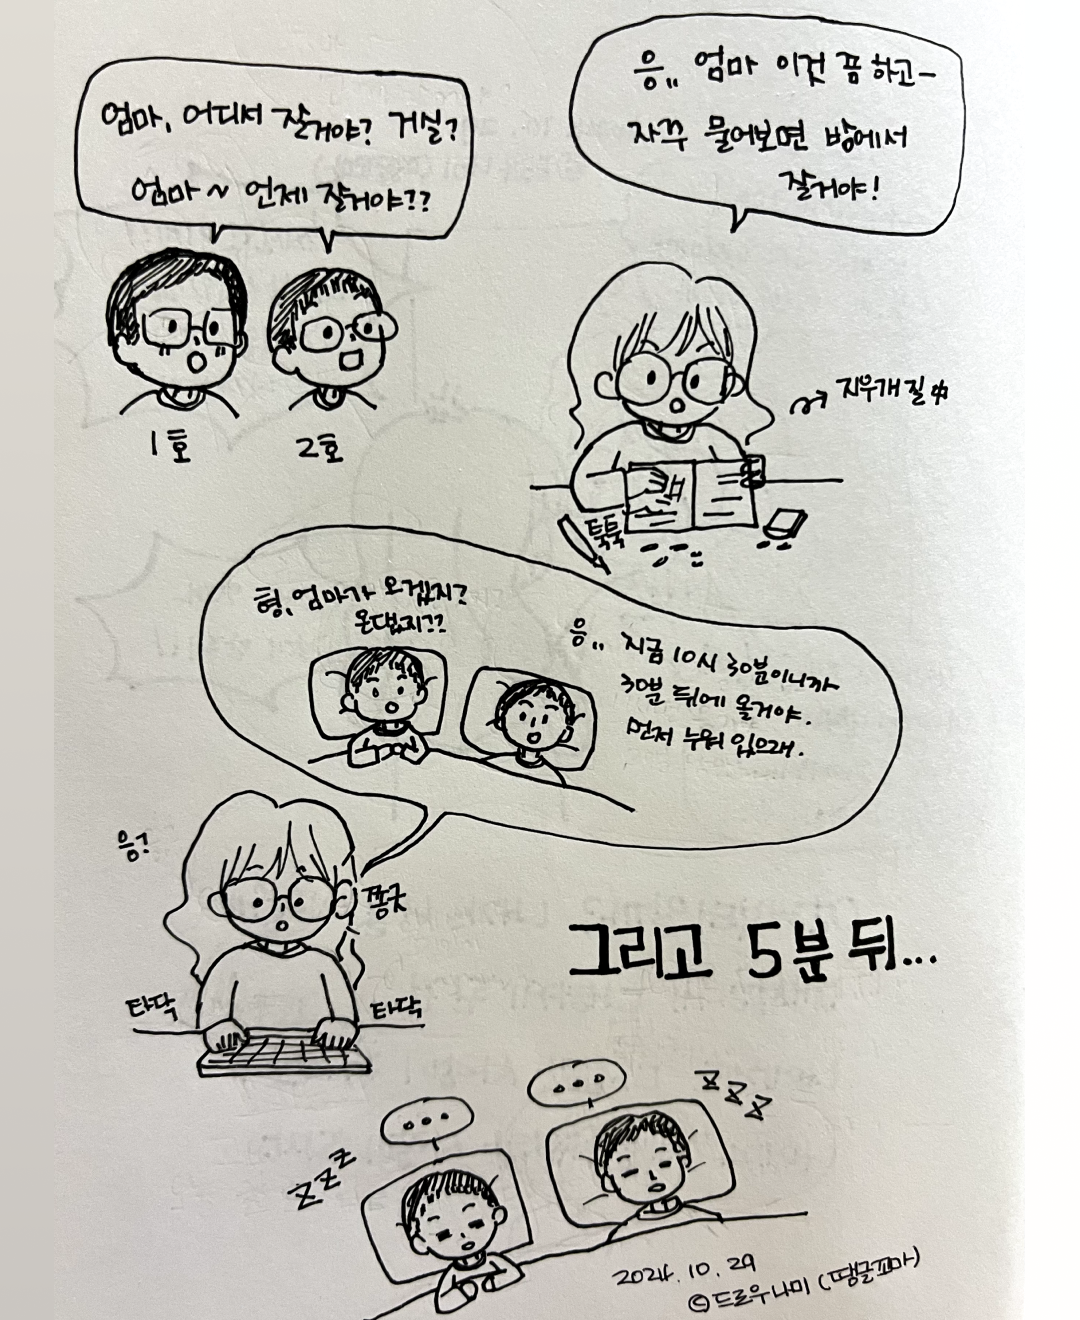 엄마, 어디서 잘거야? 거실?
엄마~ 언제 잘거야??
응,, 엄마 이것 좀 하고-
자꾸 물어보면 방에서
잘거야!
1호
2호
지우개질 中
툭툭
형, 엄마가 오겠지?
온댔지??
응,, 지금 10시 30분이니까
30분 뒤에 올거야.
먼저 누워 있으래.
응?
쫑긋
타닥
타닥
그리고 5분 뒤...
...
zzz
...
zzz
2024. 10. 29
©드로우나미 (땡글꼬마)